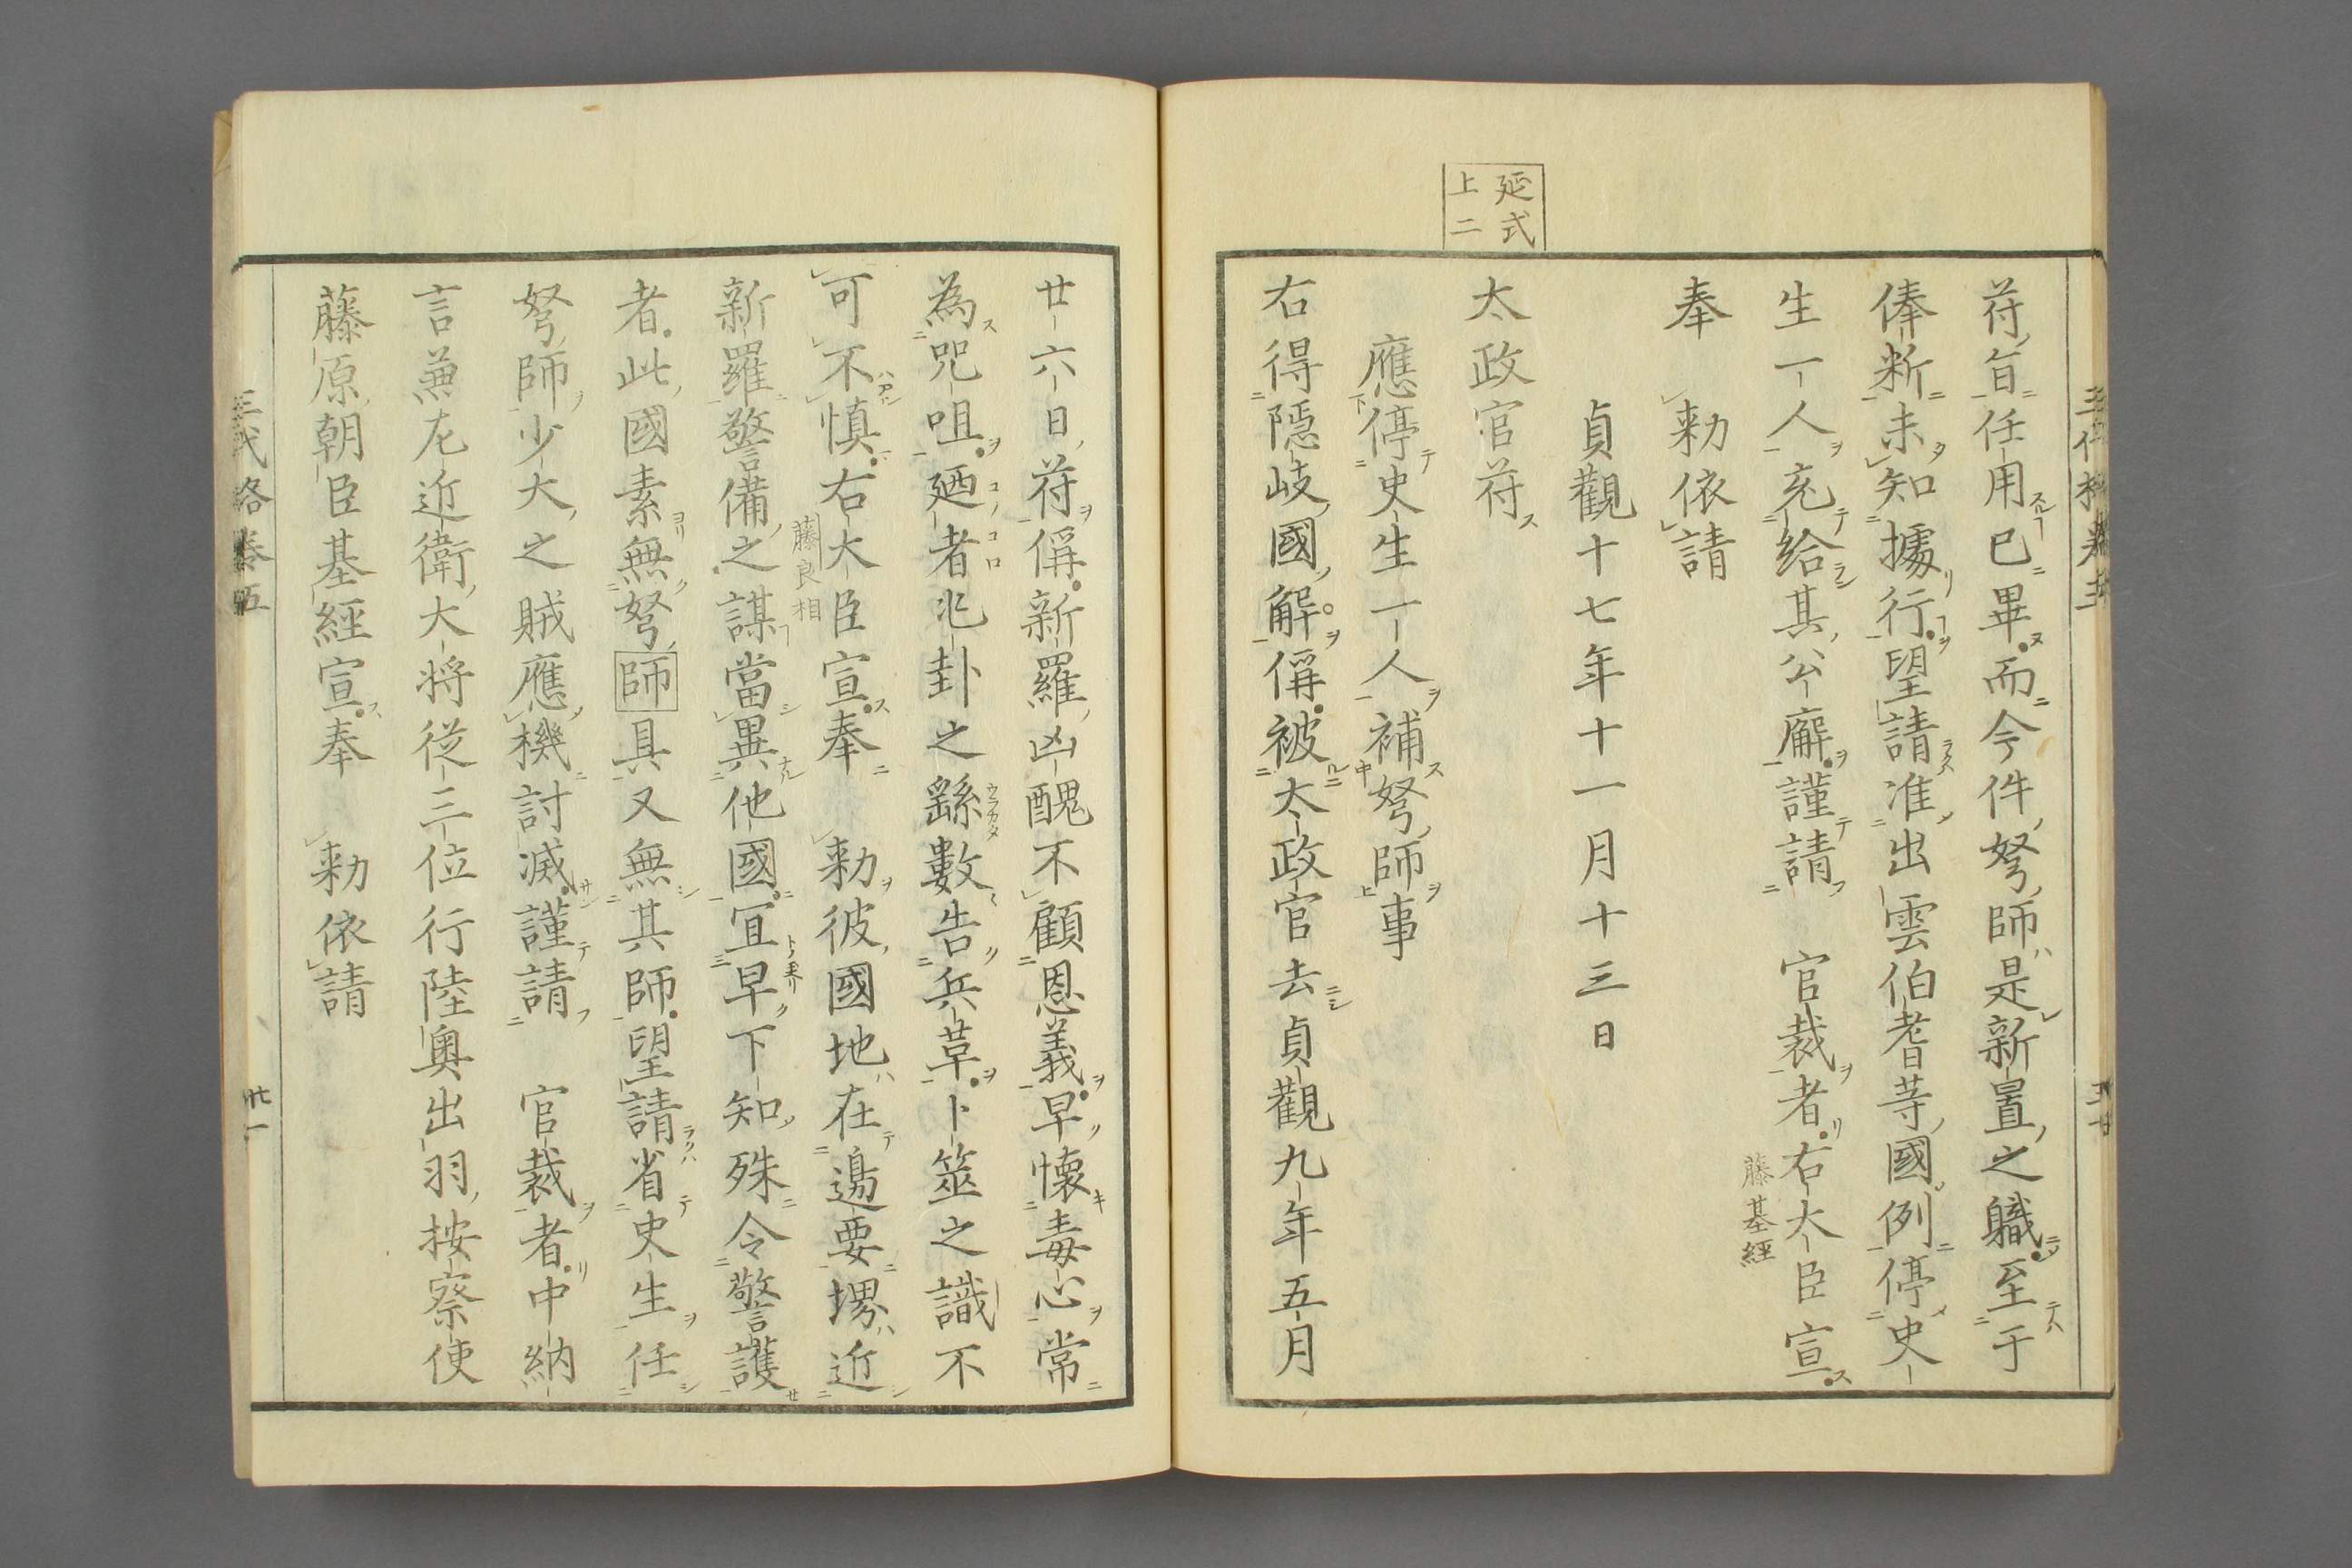 延式
上二
符旨任用已畢而今件弩師是新置之職至于
俸料未知據行望請准出雲伯耆等國例停史
生一人充給其公廨謹請　官裁者右大臣宣
藤基經
奉　勅依請
貞觀十七年十一月十三日
太政官符
應停史生一人補弩師事
右得隱岐國解偁被太政官去貞觀九年五月
廿六日符偁新羅凶醜不顧恩義早懷毒心常
為咒咀廼者兆卦之繇數告兵革卜筮之識不
可不慎右大臣宣奉　勅彼國地在邊要堺近
藤良相
新羅警備之謀當異他國宜早下知殊令警護
者此國素無弩師具又無其師望請省史生任
弩師少大之賊應機討滅謹請　官裁者中納
言兼左近衛大将從三位行陸奧出羽按察使
藤原朝臣基經宣奉　勅依請
三代格卷五
廿一